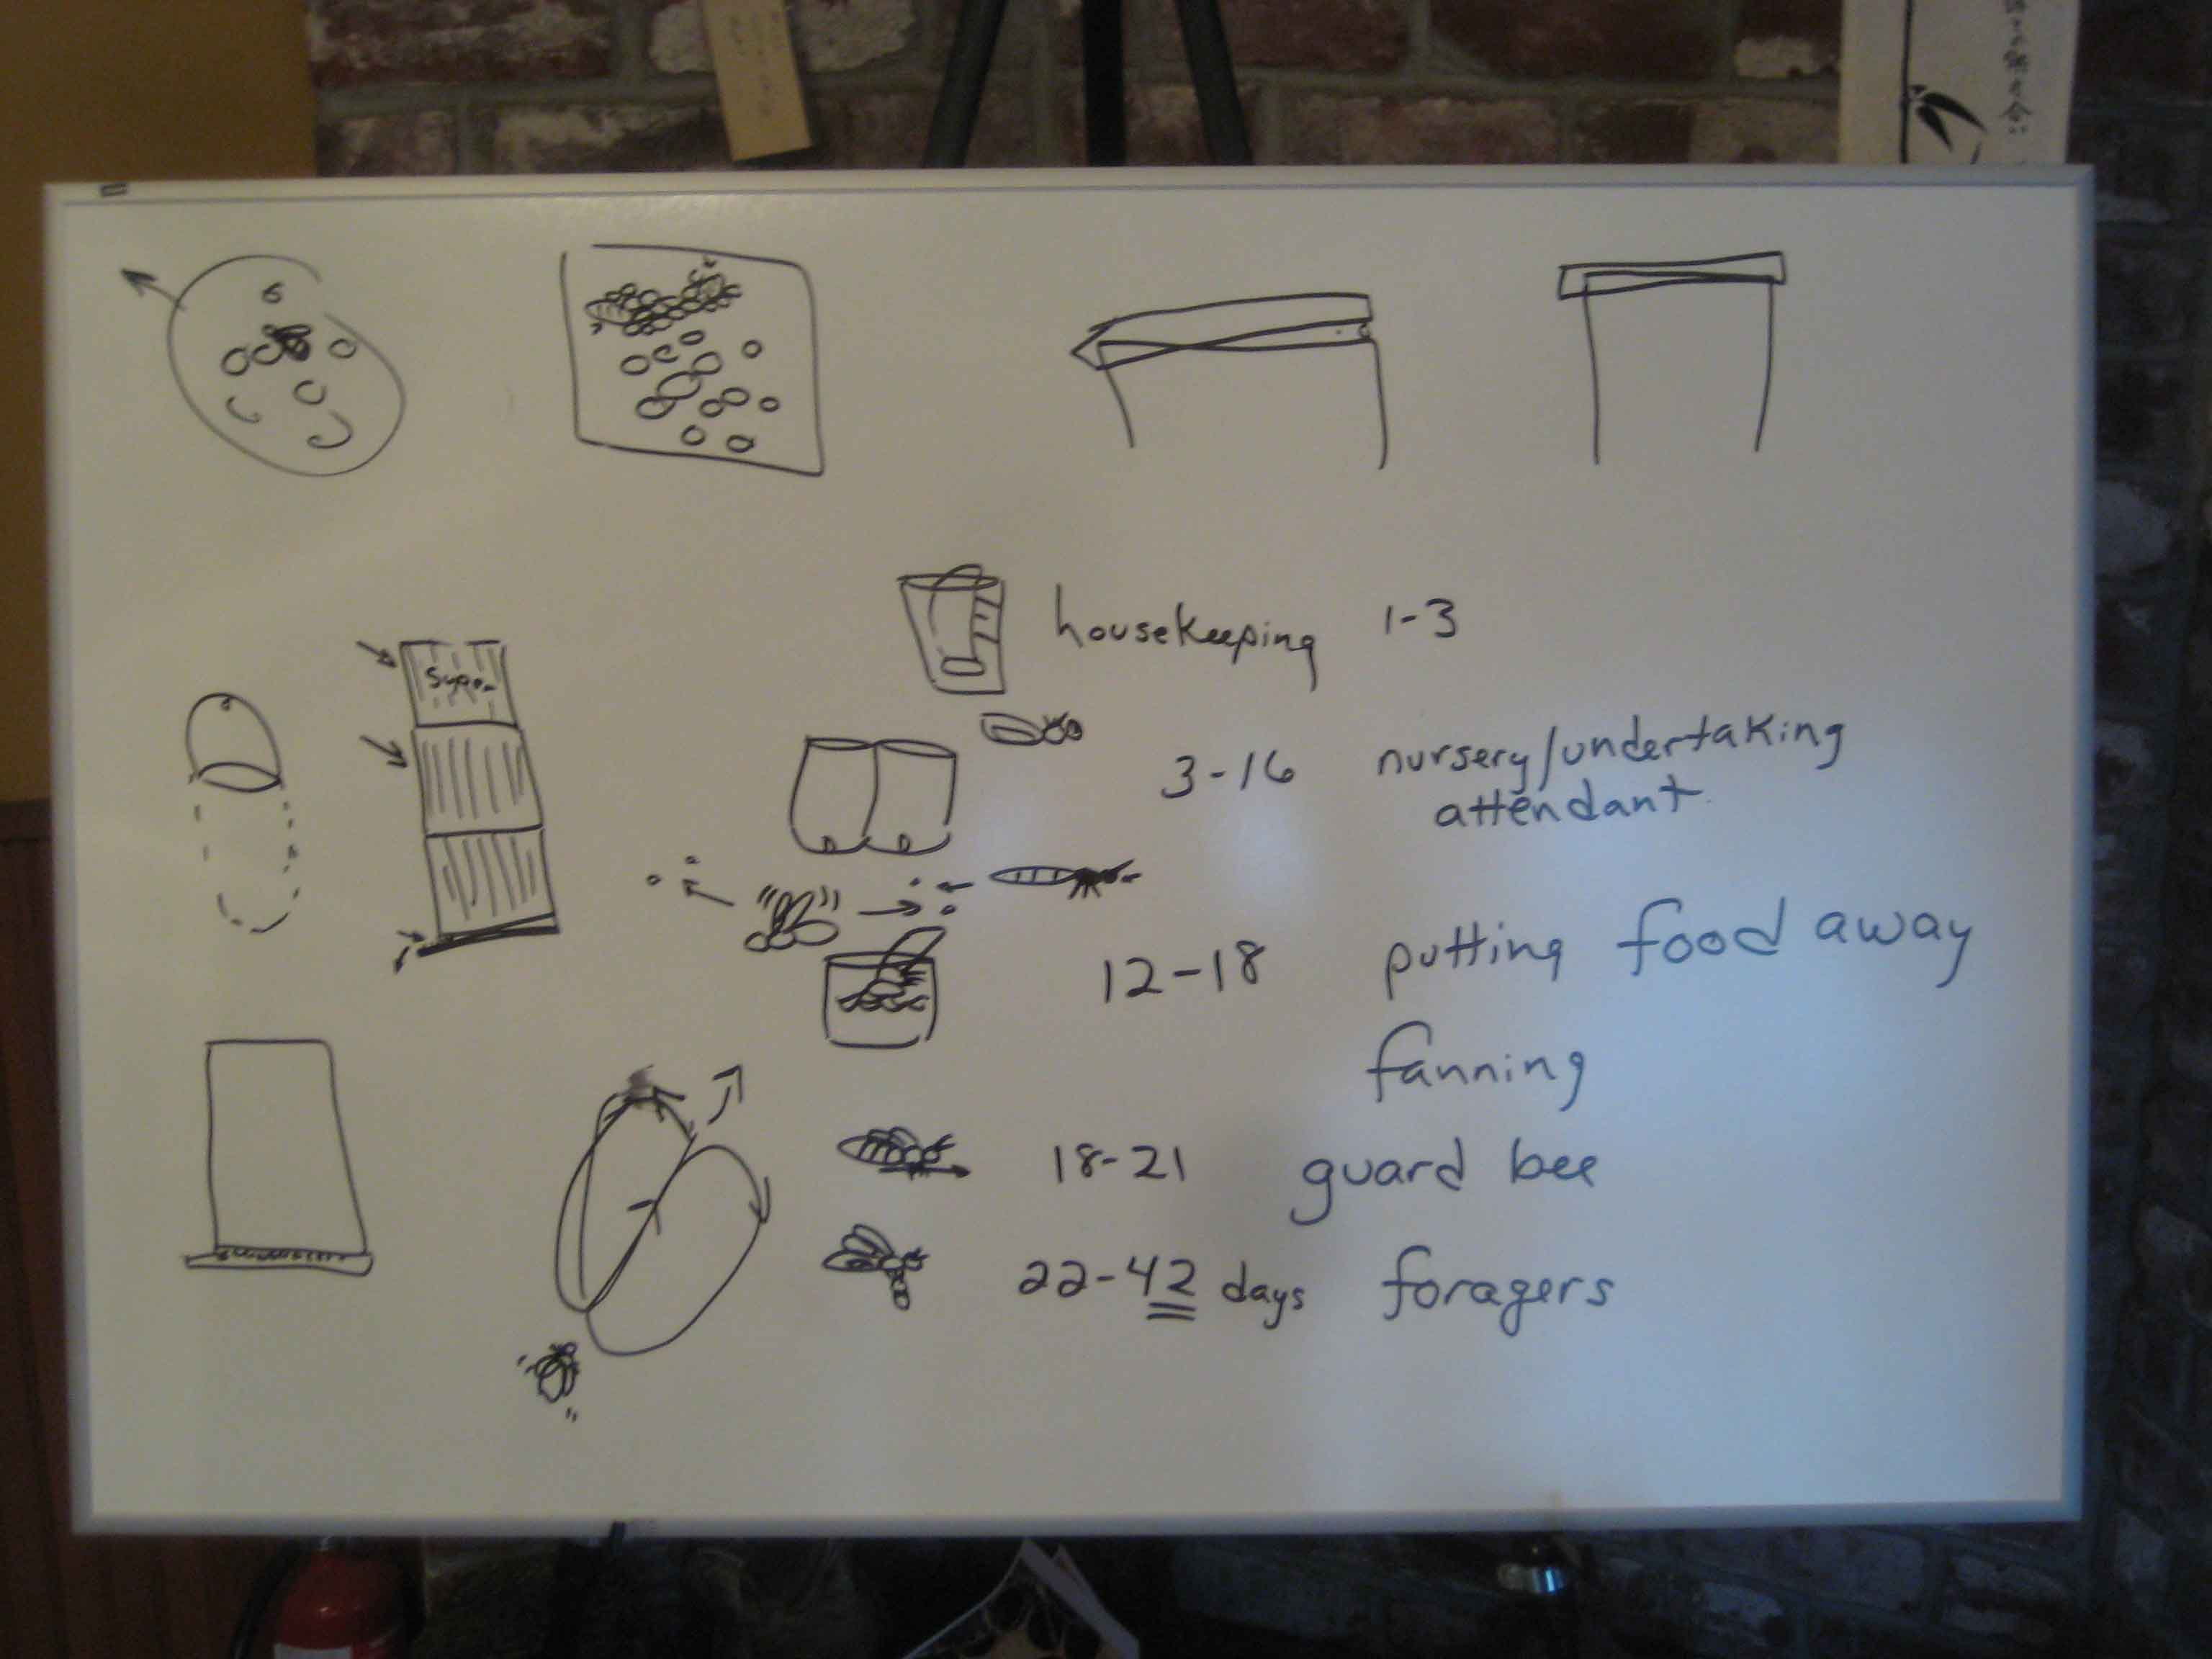 housekeeping 1-3
3-16 nursery/undertaking
attendant
12-18 putting food away
fanning
18-21 guard bee
22-42 days foragers